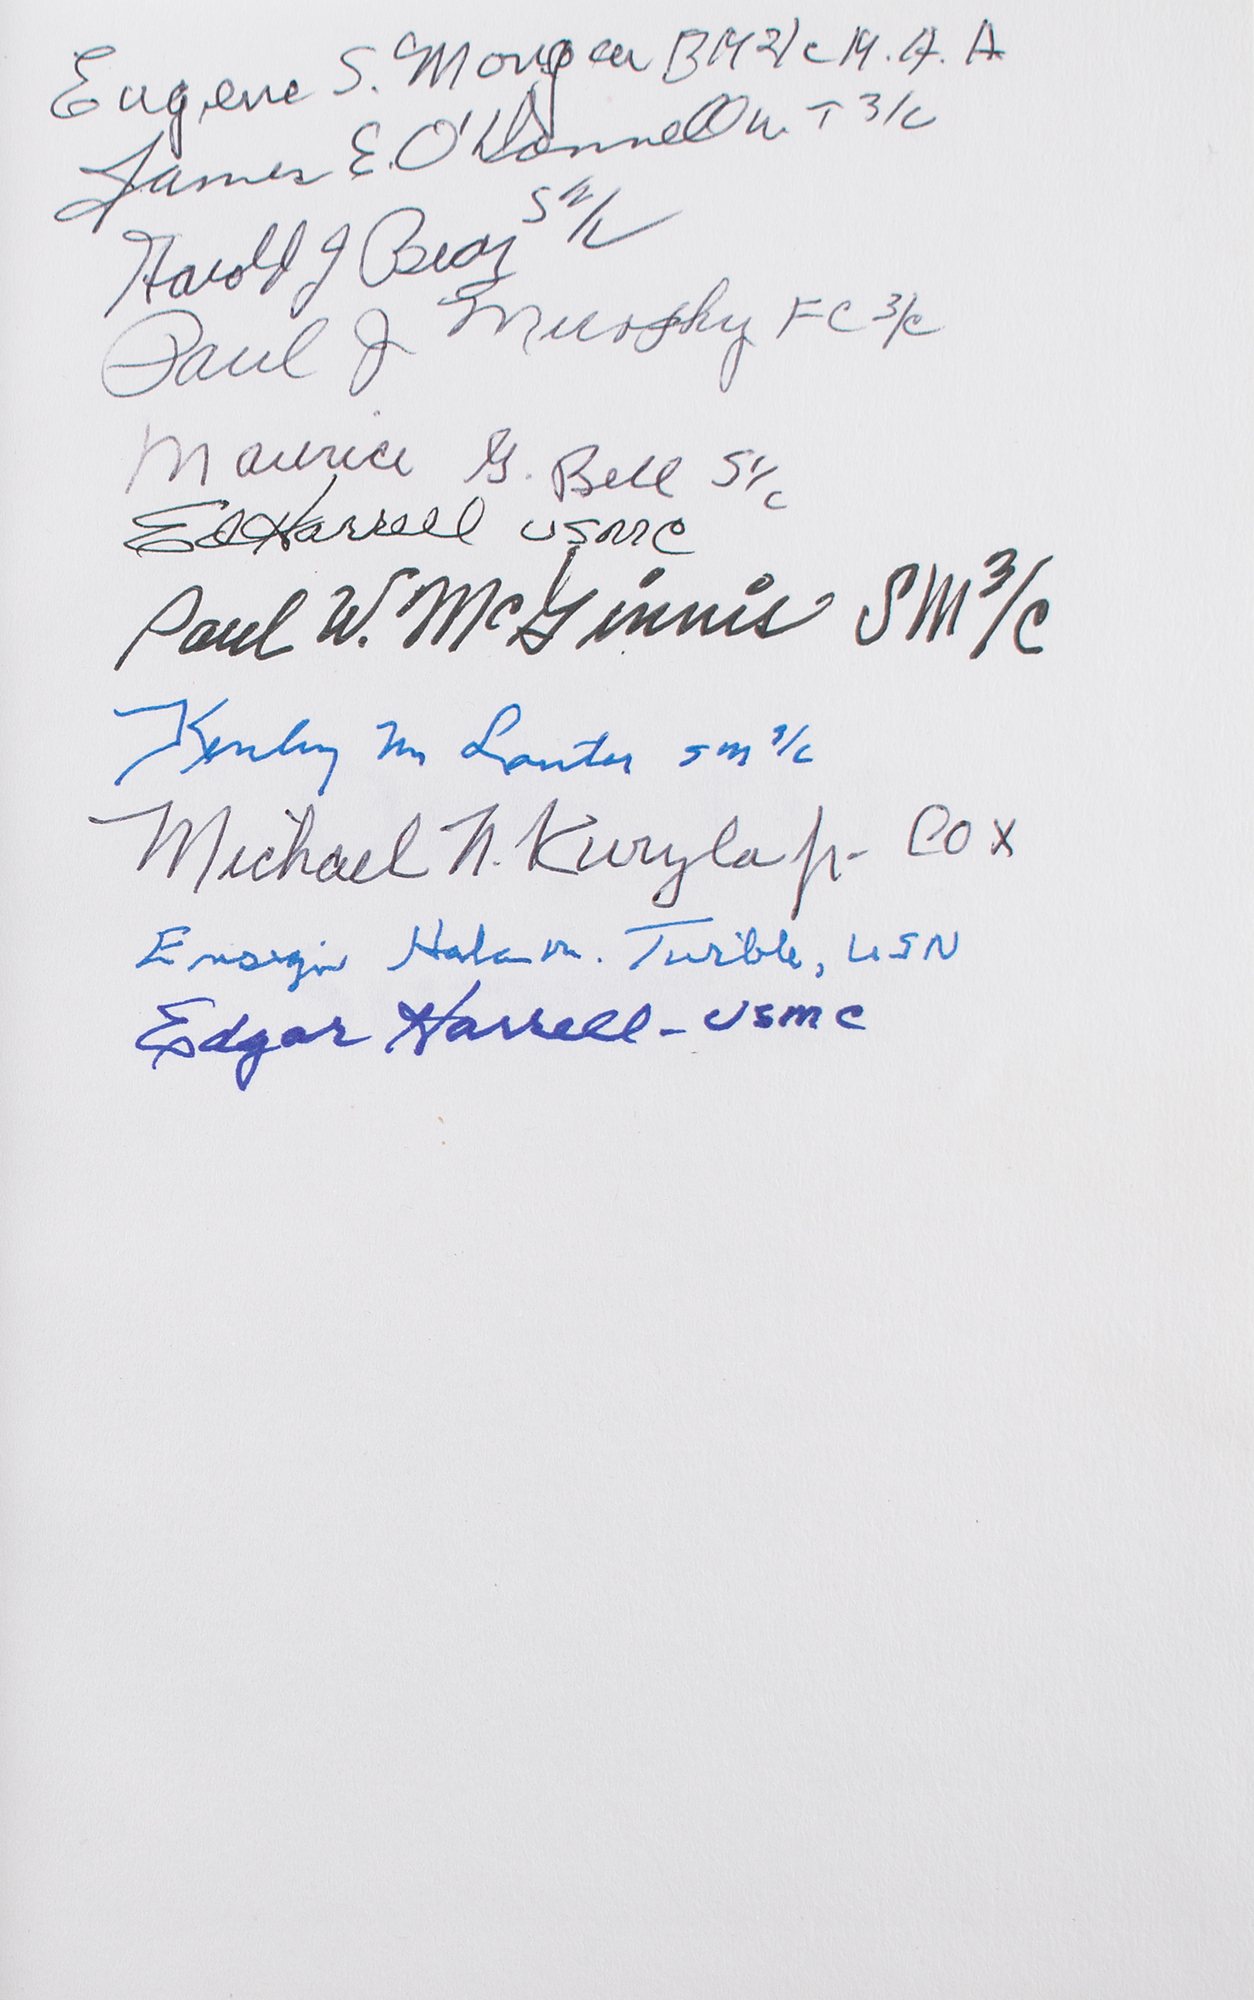 Eugene S. Morgan BM 2/c M.A.A
James E. O'Donnell W.T 3/c
Harold J Bray S 2/c
Paul J Murphy FC 3/c
Maurice G. Bell S 1/c
Ed Harrell USMC
Paul W. McGinnis SM 3/c
Kenley M Lanter SM 3/c
Michael N. Kuryla Jr- COX
Ensign Harlan M. Twible, USN
Edgar Harrell - USMC